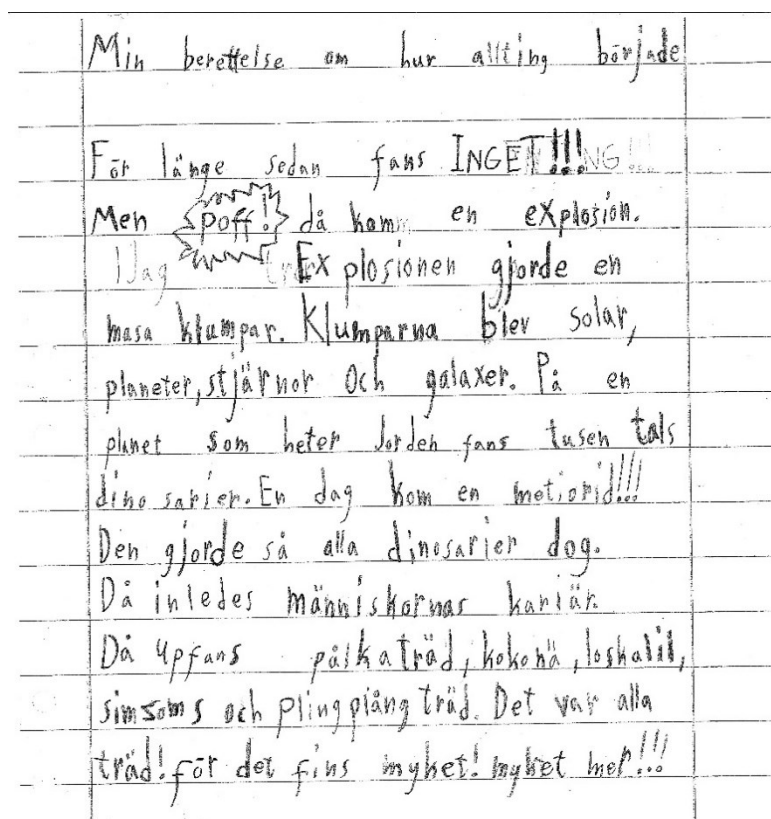 Min berettelse om hur allting började
För länge sedan fans INGET!!!
Men poff! då komm en explosion.
Explosionen gjorde en
masa klumpar. Klumparna blev solar,
planeter, stjärnor och galaxer. På en
planet som heter Jorden fans tusen tals
dino sarier. En dag kom en metiorid!!!
Den gjorde så alla dinosarier dog.
Då inledes människornas kariär.
Då upfans påskaträd, kokohä, loskalil,
simsoms och plingplång träd. Det var alla
träd! för det fins myket! myket mer!!!